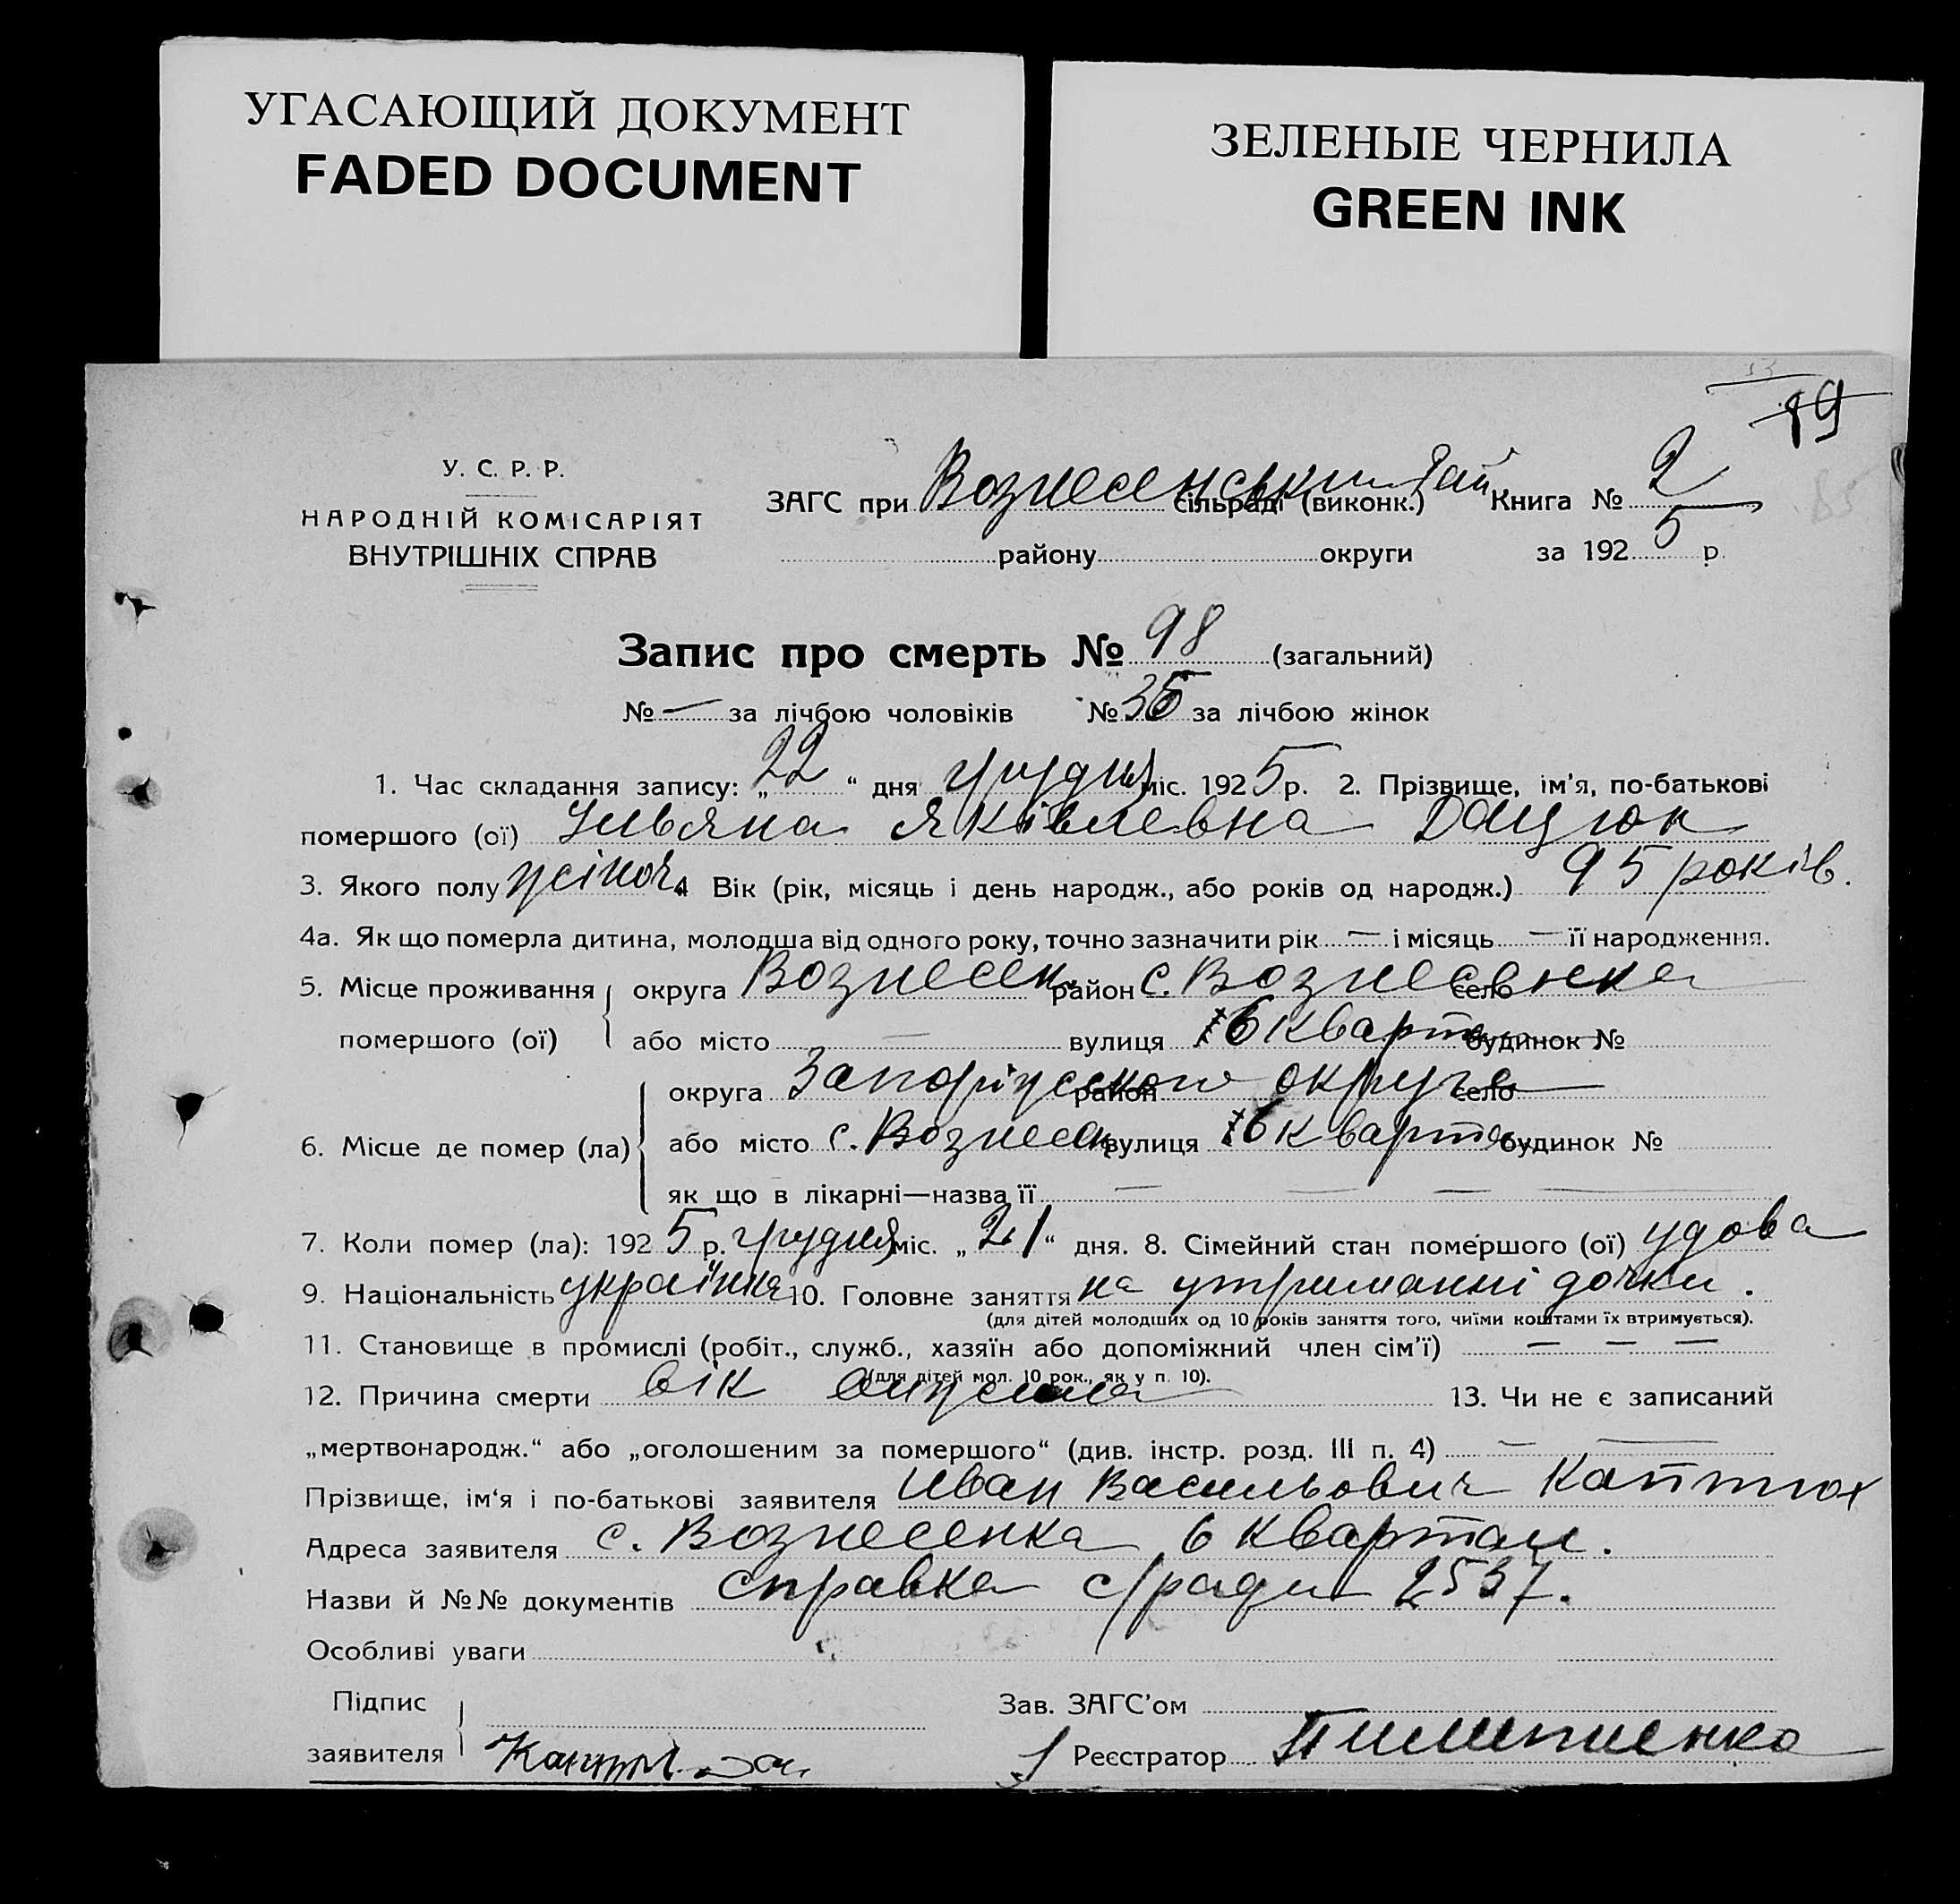 УГАСАЮЩИЙ ДОКУМЕНТ
FADED DOCUMENT
ЗЕЛЕНЫЕ ЧЕРНИЛА
GREEN INK
19
У. С. Р. Р.
НАРОДНІЙ КОМІСАРІЯТ
ВНУТРІШНІХ СПРАВ
ЗАГС при Вознесенским Рай сільраді (виконк.) Книга № 2
району округи за 1925 р.
Запис про смерть № 98 (загальний)
№ — за лічбою чоловіків № 35 за лічбою жінок
1. Час складання запису: „22“ дня грудня міс. 1925 р. 2. Прізвище, ім'я, по-батькові
помершого (ої) Ульяна Яківлевна Дацюк
3. Якого полу жіноч. 4 Вік (рік, місяць і день народж., або років од народж.) 95 років.
4а. Як що померла дитина, молодша від одного року, точно зазначити рік — і місяць — її народження.
5. Місце проживання помершого (ої) округа Вознесен. район с. Вознесенка село
або місто — вулиця 6 квартал будинок №
6. Місце де помер (ла) округа Запоріжського район округа село
або місто с. Вознесен. вулиця 6 квартал будинок №
як що в лікарні—назва її — — — —
7. Коли помер (ла): 1925 р. грудня міс. „21“ дня. 8. Сімейний стан помершого (ої) удова
9. Національність українка 10. Головне заняття на утриманні дочки.
(для дітей молодших од 10 років заняття того, чиїми коштами їх втримується).
11. Становище в промислі (робіт., служб., хазяїн або допоміжний член сім'ї) — — —
(для дітей мол. 10 рок., як у п. 10).
12. Причина смерти вік 13. Чи не є записаний
„мертвонародж.“ або „оголошеним за помершого“ (див. інстр. розд. III п. 4) — —
Прізвище, ім'я і по-батькові заявителя Иван Васильович Каптюх
Адреса заявителя с. Вознесенка 6 квартал.
Назви й №№ документів справка с/ради 2537.
Особливі уваги
Підпис заявителя
Зав. ЗАГС'ом
Реєстратор Пилипченко